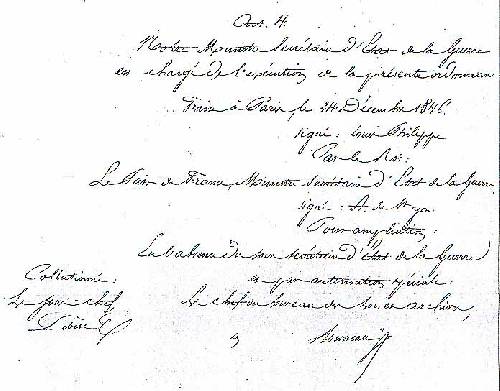 Art. 4
Notre Ministre Secrétaire d'Etat de la Guerre
est chargé de l'exécution de la présente ordonnance
Fait à Paris, le 24 Décembre 1846.
signé : Louis Philippe
Par le Roi :
Le Pair de France, Ministre Secrétaire d'Etat de la Guerre
signé : A. de St yon.
Pour ampliation :
du Secrétaire d'Etat de la Guerre
et par autorisation spéciale :
Collationné :
Le chef du bureau des lois et archives,
Le sous chef,